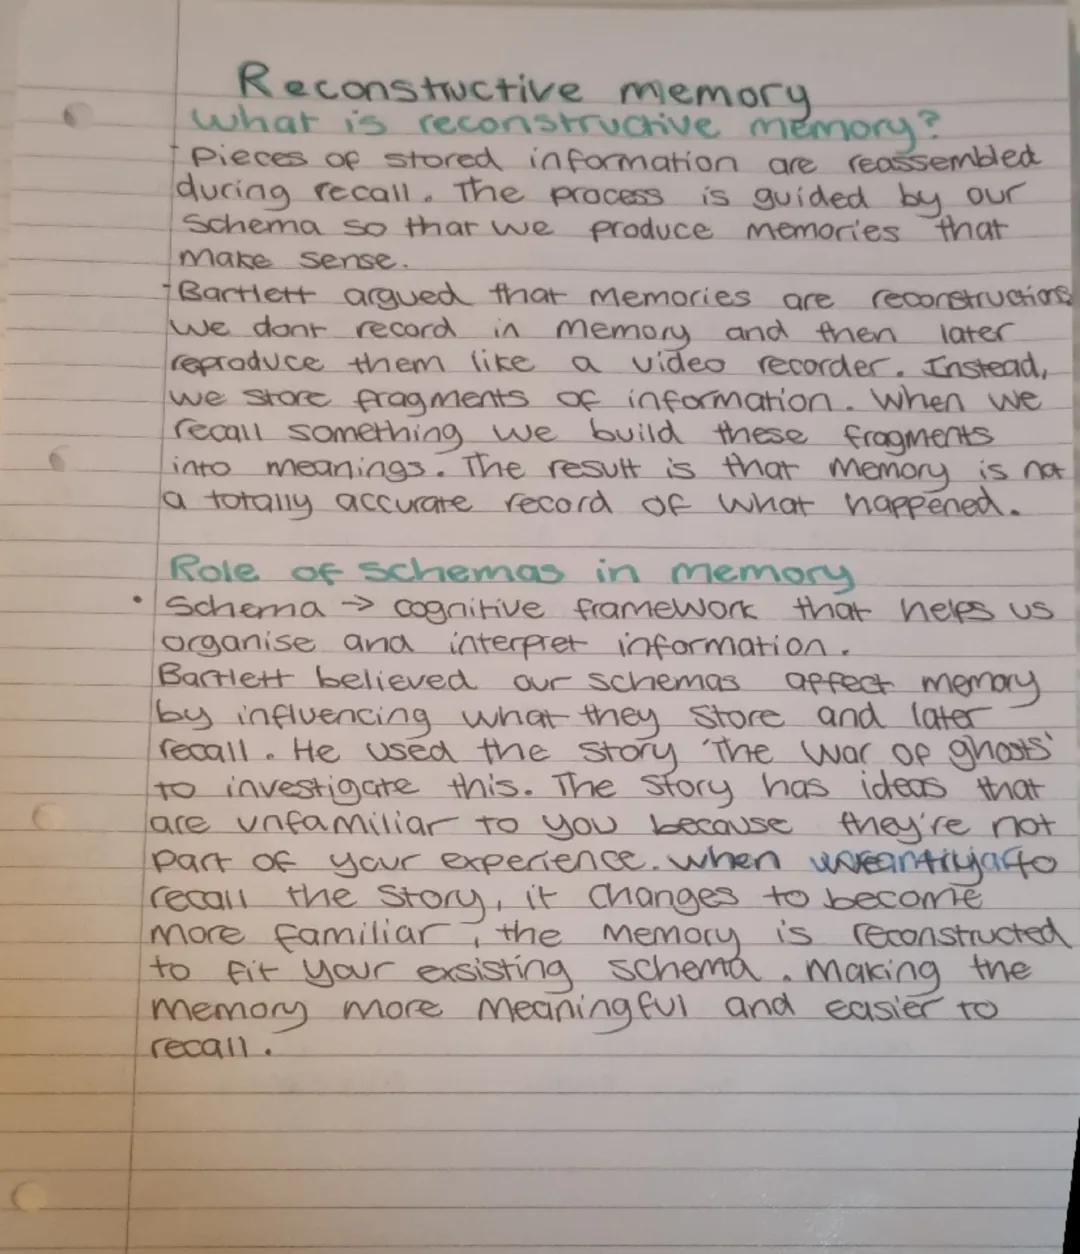 Reconstructive memory
What is reconstructive memory?
- Pieces of stored information are reassembled
during recall. The process is guided by our
Schema so that we produce memories that
make sense.
- Bartlett argued that memories are reconstructions
We dont record in memory and then later
reproduce them like a video recorder. Instead,
we store fragments of information. When we
recall something we build these fragments
into meanings. The result is that memory is not
a totally accurate record of what happened.
Role of schemas in memory
• Schema → cognitive framework that helps us
organise and interpret information.
Bartlett believed our schemas affect memory
by influencing what they store and later
recall. He used the story 'The war of ghosts'
to investigate this. The story has ideas that
are unfamiliar to you because they're not
part of your experience. when to
recall the story, it changes to become
more familiar, the memory is reconstructed
to fit your exsisting schema. making the
memory more meaningful and easier to
recall.